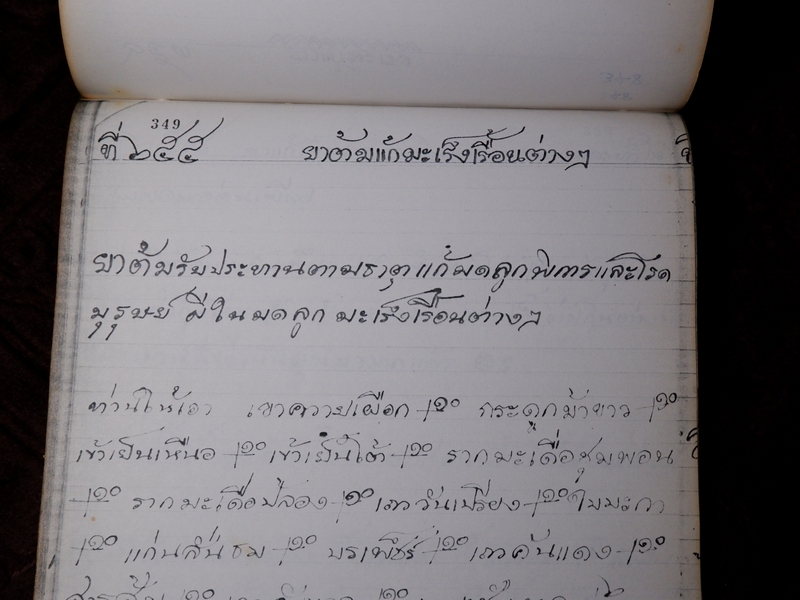 349
ที่ ๖๕๕ ยาต้มแก้มะเร็งเรื้อนต่างๆ
ยาต้มรับประทานตามธาตุ แก้มดลูกพิการและโรค
บุรุษย์ ฝีในมดลูก มะเร็งเรื้อนต่างๆ
ท่านให้เอา เขาควายเผือก ๑๐ กระดูกม้าขาว ๑๐
เข้าเย็นเหนือ ๑๐ เข้าเย็นใต้ ๑๐ รากมะเดื่อชุมพอน
๑๐ รากมะเดือปล้อง ๑๐ เถาวันเปรียง ๑๐ ใบมะกา
๑๐ แก่นสนขม ๑๐ บรเพ็ชร์ ๑๐ เถาคันแดง ๑๐